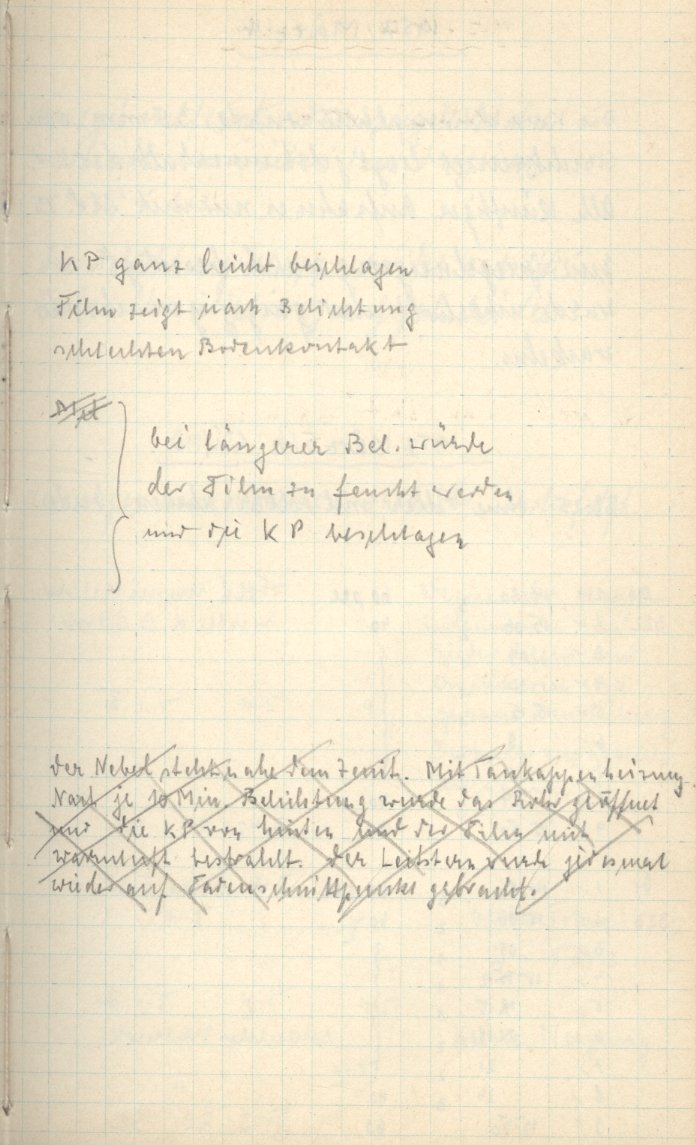 KP ganz leicht beschlagen
Film zeigt nach Belichtung
schlechten Bodenkontakt
bei längerer Bel. würde
der Film zu feucht werden
und die KP beschlagen
der Nebel steht nahe dem Zenit. Mit Taukappenheizung.
Nach je 10 Min. Belichtung wurde das Rohr geöffnet
und die KP von hinten und der Film mit
warmluft bestrahlt. Der Leitstern wurde jedesmal
wieder auf Fadenschnittpunkt gebracht.